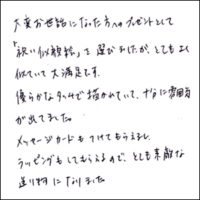 大変お世話になった方へのプレゼントとして
「祝い似顔絵」を選びましたが、とてもよく
似ていて大満足です。
優らかなタッチで描かれていて、すなに雰囲気
が出てました。
メッセージカードもつけてもらえるし、
ラッピングもしてもらえるので、とても素敵な
送り物になりました。